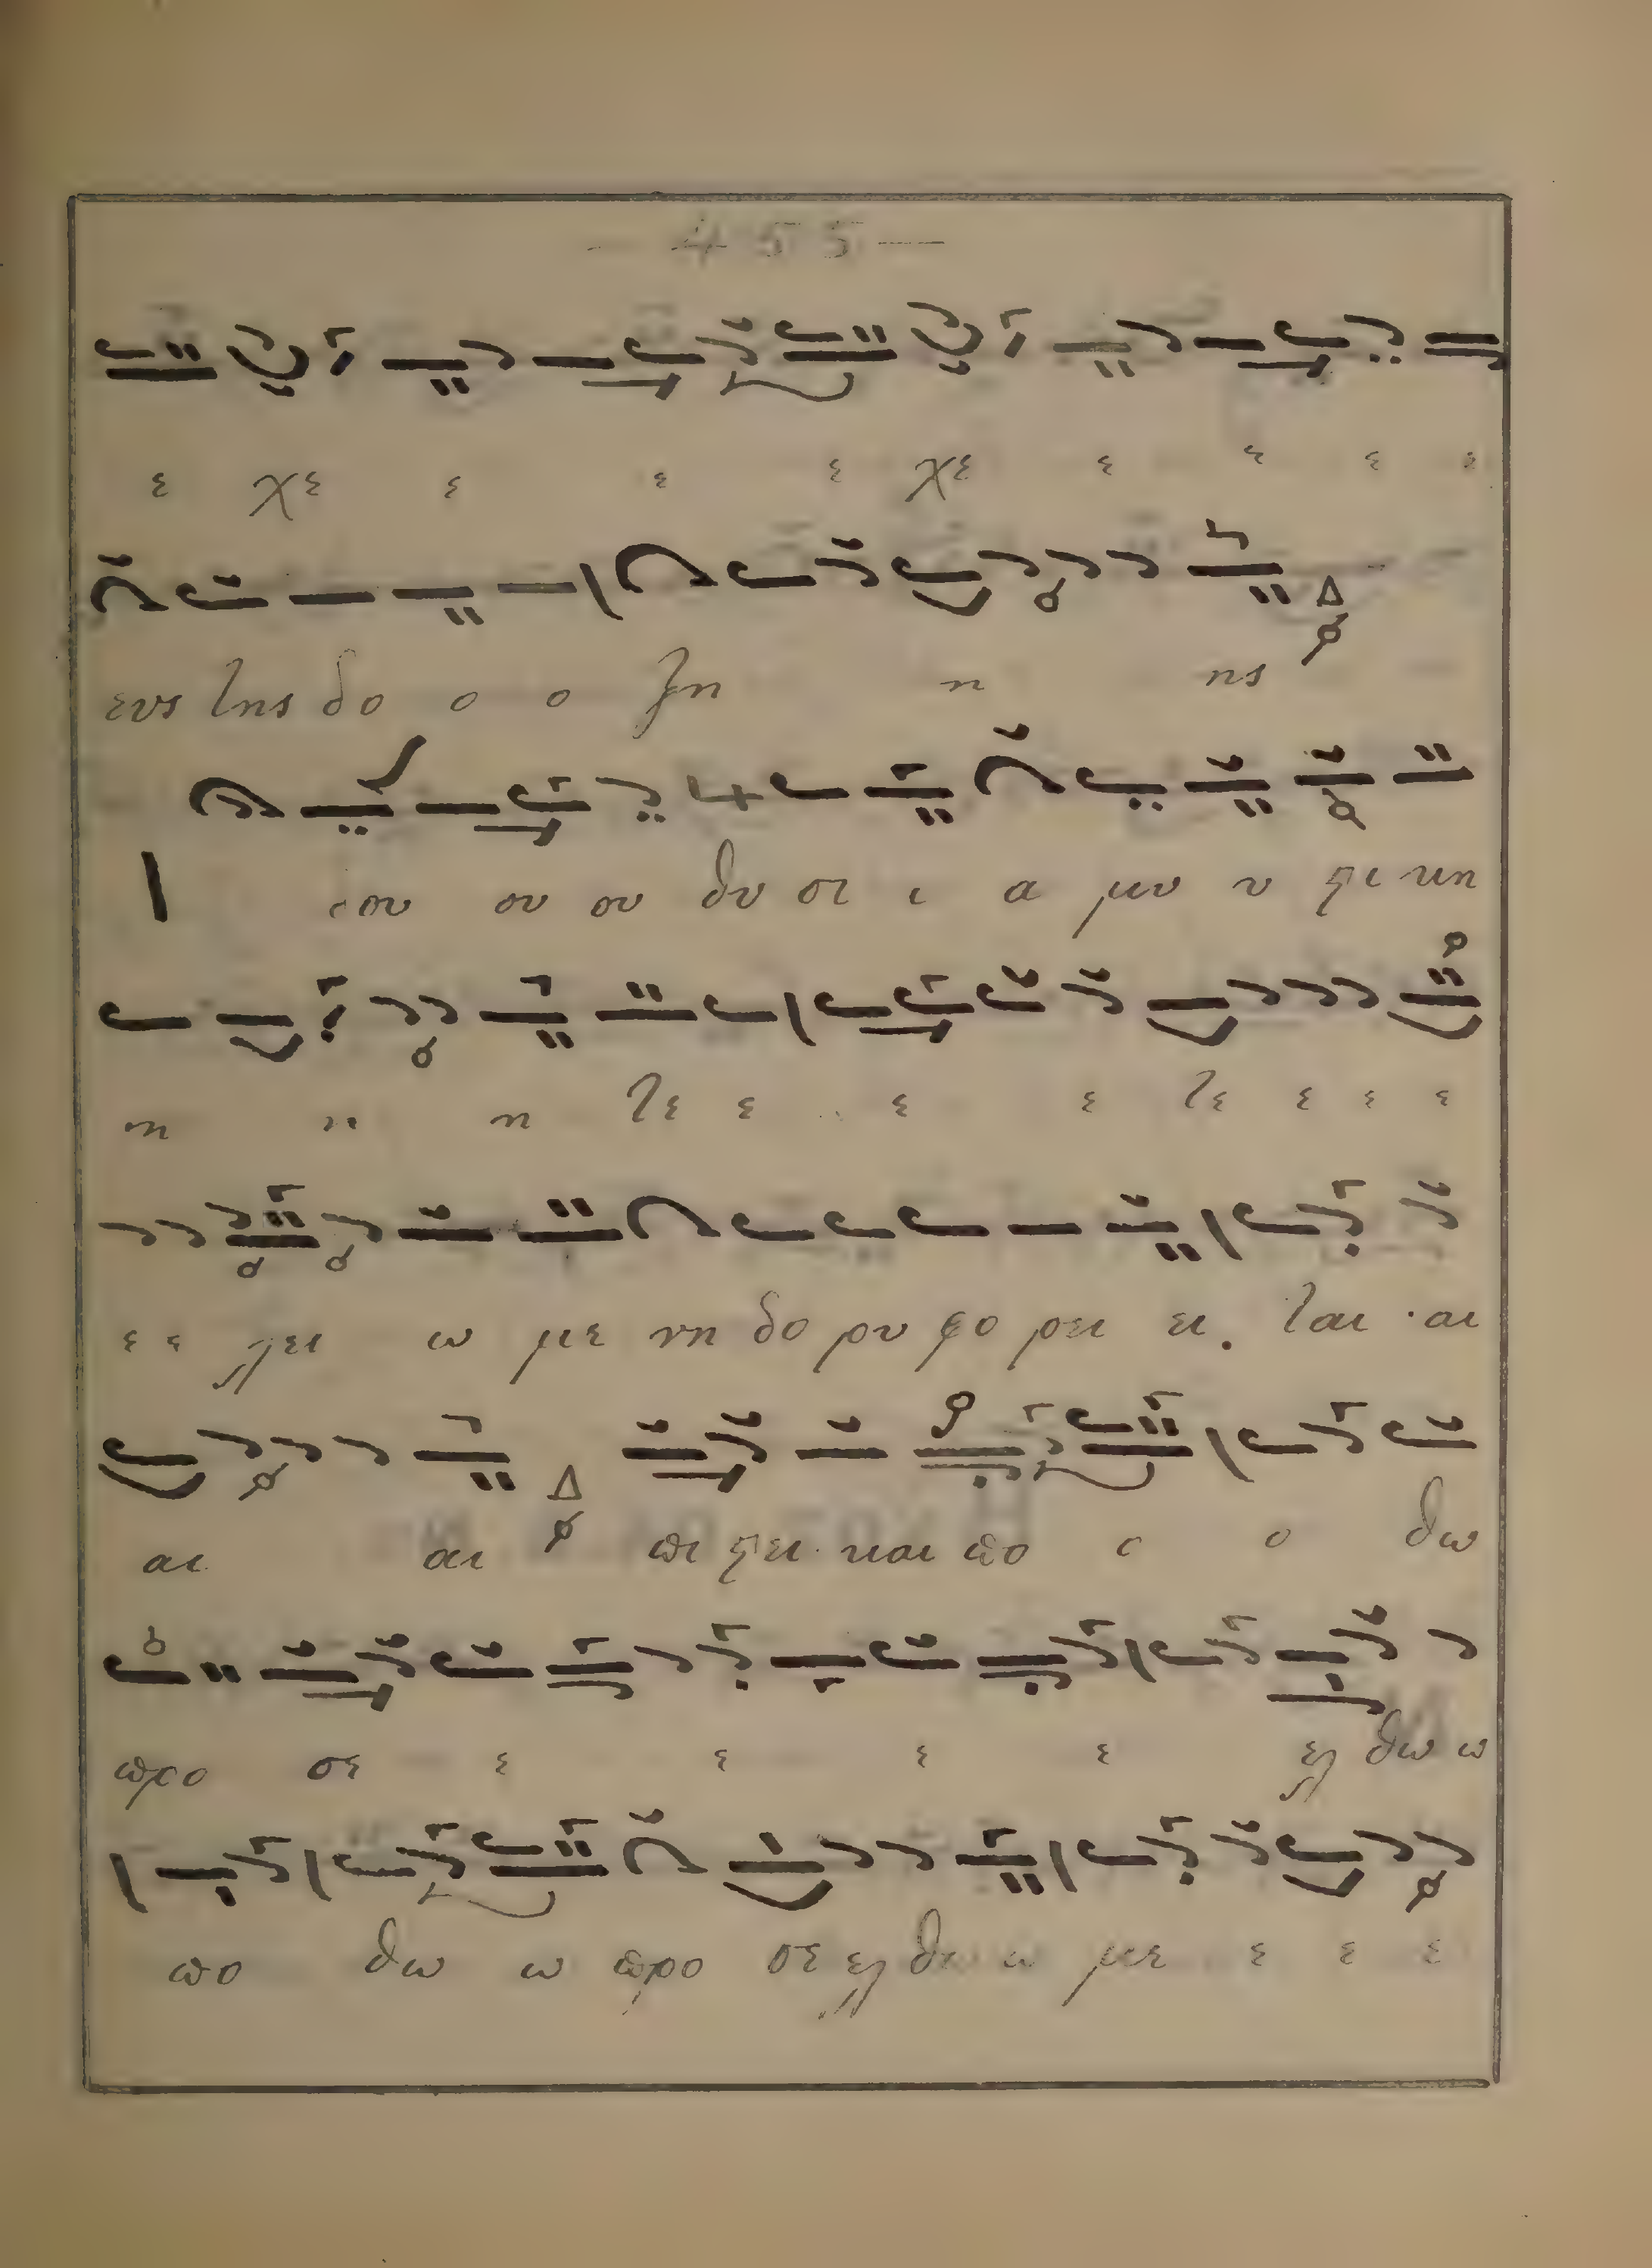 — 455 —
ε χε ε ε ε χε ε ε ε ε
ευς της δο ο ο ξη η ης
ου ου ου θυ σι ι α μυ υ στι κη
η η η τε ε ε ε τε ε ε ε
ε ε λει ω με νη δο ρυ φο ρει ει ται αι
αι αι πι στει και πο ο ο θω
προ σε ε ε ε ε ελ θω ω
πο θω ω προ σε ελ θω ω με ε ε ε